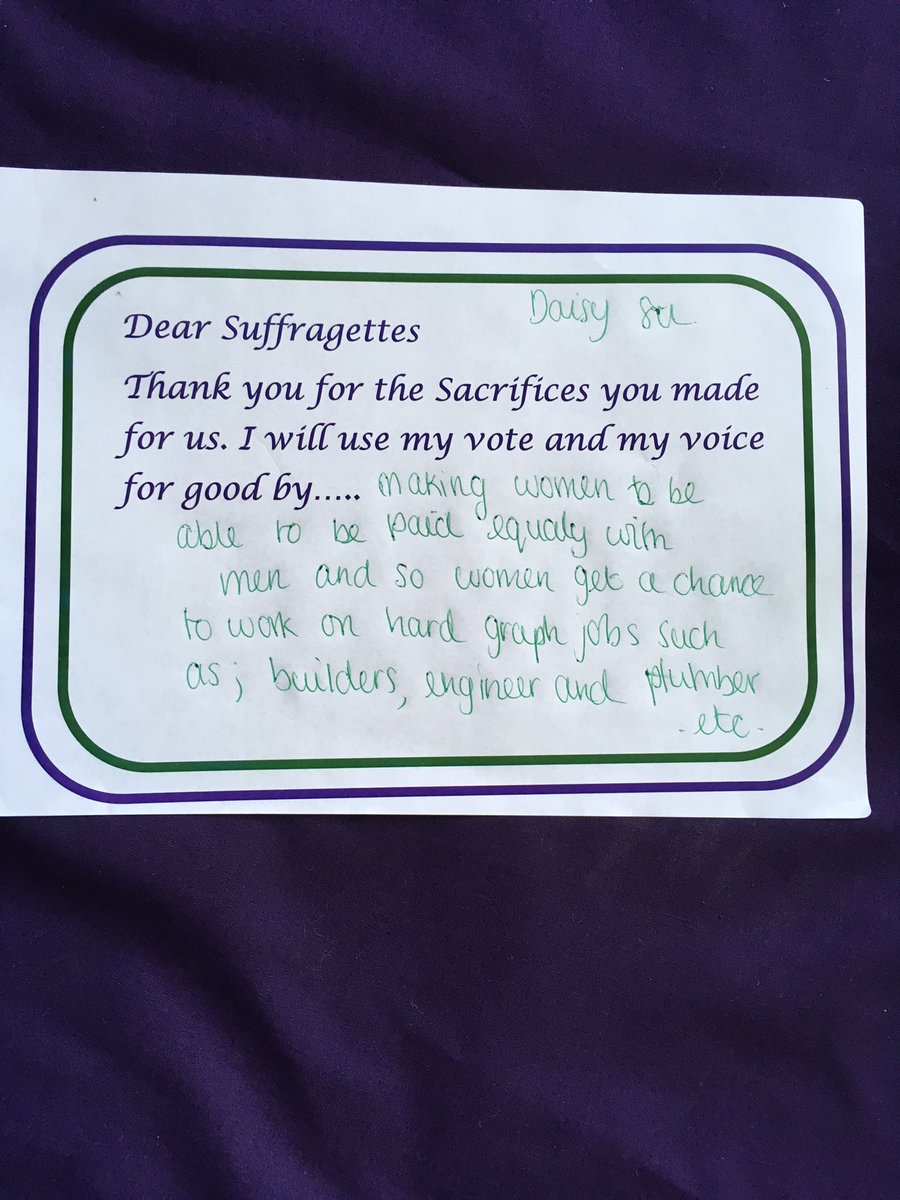 Daisy
Dear Suffragettes
Thank you for the Sacrifices you made
for us. I will use my vote and my voice
for good by..... making women to be
able to be paid equaly with
men and so women get a chance
to work on hard graph jobs such
as; builders, engineer and plumber
-etc-